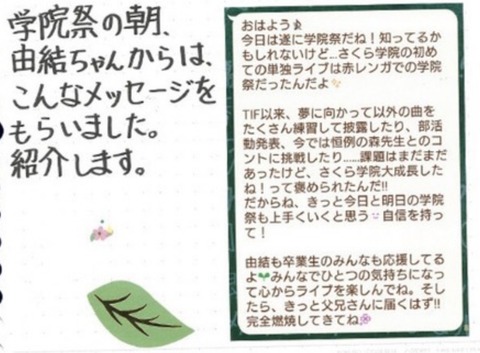 学院祭の朝、
由結ちゃんからは、
こんなメッセージを
もらいました。
紹介します。
おはよう
今日は遂に学院祭だね！知ってるか
もしれないけど...さくら学院の初め
ての単独ライブは赤レンガでの学院
祭だったんだよ
TIF以来、夢に向かって以外の曲を
たくさん練習して披露したり、部活
動発表、今では恒例の森先生とのコ
ントに挑戦したり......課題はまだまだ
あったけど、さくら学院大成長した
ね！って褒められたんだ!!
だからね、きっと今日と明日の学院
祭も上手くいくと思う 自信を持っ
て！
由結も卒業生のみんなも応援してる
よ🌱みんなでひとつの気持ちになっ
て心からライブを楽しんでね。そ
したら、きっと父兄さんに届くはず!!
完全燃焼してきてね🌸